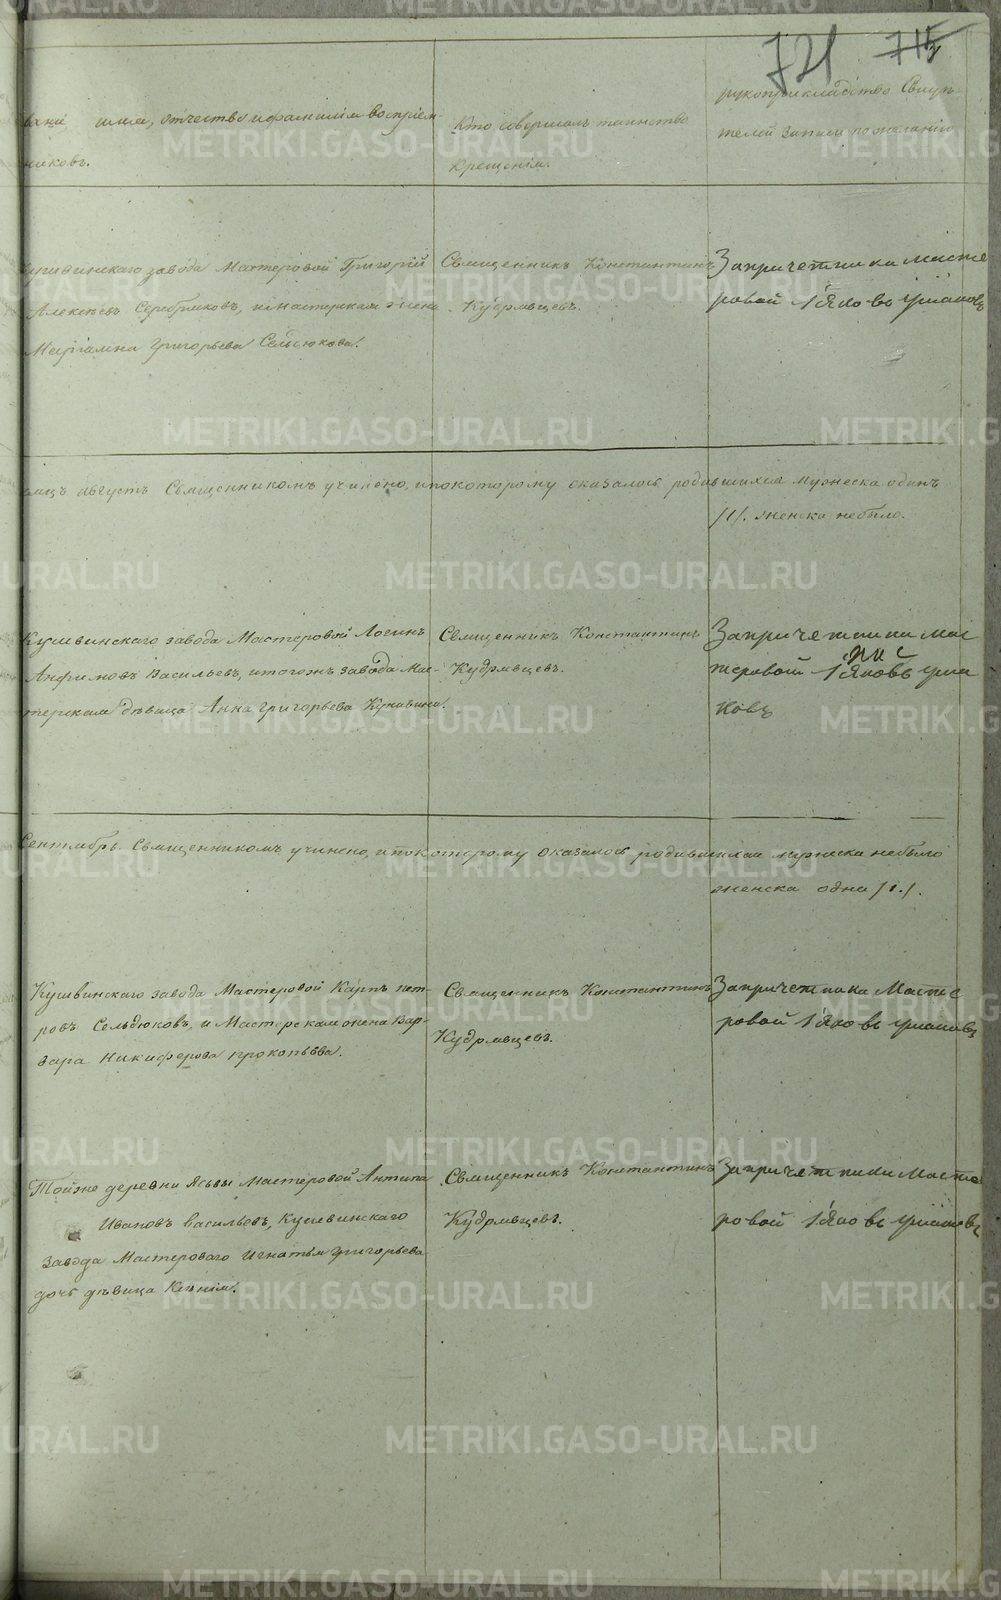 721 715
имя, отчество и фамилія воспріем-
никовъ.
Кто совершалъ таинство
крещенія.
рукоприкладство Свидѣ-
телей записи по желанію
завода Мастеровой Григорій
Алексѣевъ Серебряковъ, и мастерская жена
Маріамна Григорьева Сельдюкова.
Священникъ Константинъ
Кудрявцевъ.
Запричетника Масте
ровой Яковъ Ушаковъ
августъ Священникомъ учинено, ипокоторому оказалось родившихся мужеска одинъ
/1/. женска небыло.
Кушвинскаго завода Мастеровой Логинъ
Анфимовъ Васильевъ, итогожъ завода Мас-
терская дѣвица Анна Григорьева
Священникъ Константинъ
Кудрявцевъ.
Запричетника Мас
теровой Яковъ Уша
ковъ
Сентябрь Священникомъ учинено, ипокоторому оказалось родившихся мужеска небыло
женска одна /1/.
Кушвинскаго завода Мастеровой Карпъ Пет-
ровъ Сельдюковъ, и Мастерская жена Вар-
вара Никифорова Прокопьева.
Священникъ Константинъ
Кудрявцевъ.
Запричетника Масте
ровой Яковъ Ушаковъ
Тойже деревни Ясьвы Мастеровой Антипа
Ивановъ Васильевъ, Кушвинскаго
завода Мастероваго Игнатья Григорьева
дочь дѣвица Ксенія.
Священникъ Константинъ
Кудрявцевъ.
Запричетника Масте
ровой Яковъ Ушаковъ
METRIKI.GASO-URAL.RU